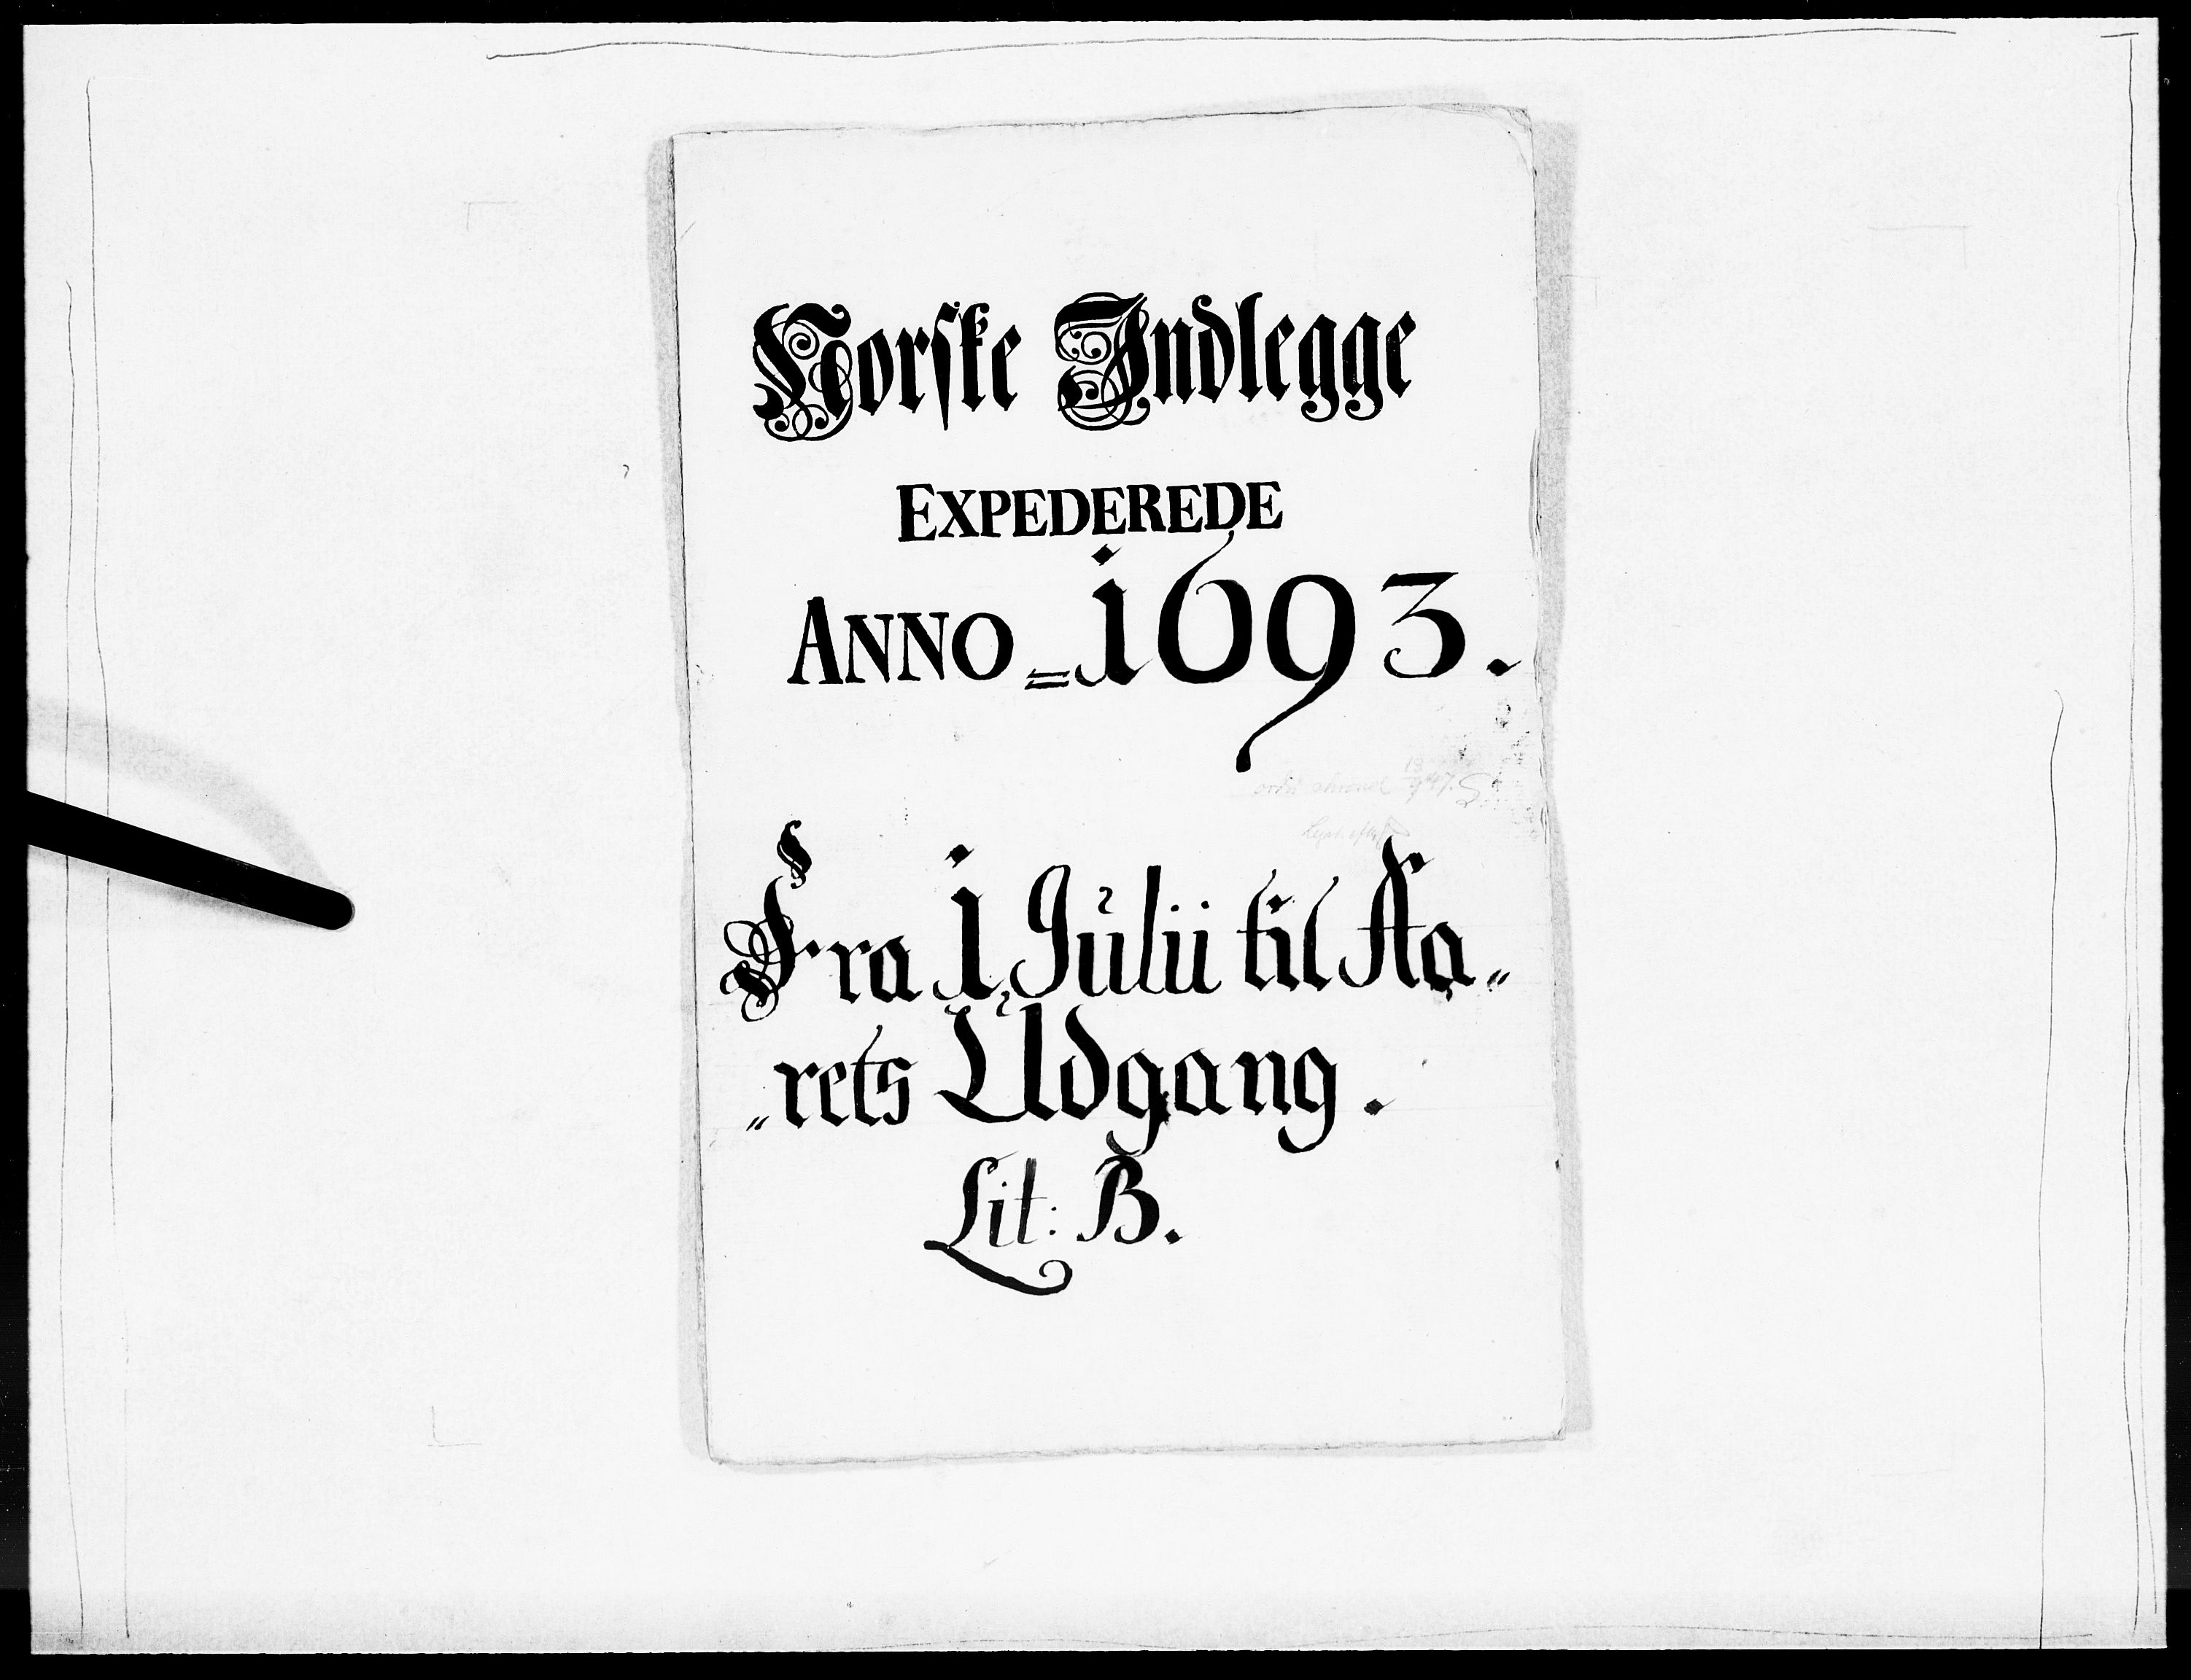 Norske Indlegge
EXPEDEREDE
ANNO = 1693.
Fra 1. Julii til Aa„
„rets Udgang.
Lit: B.